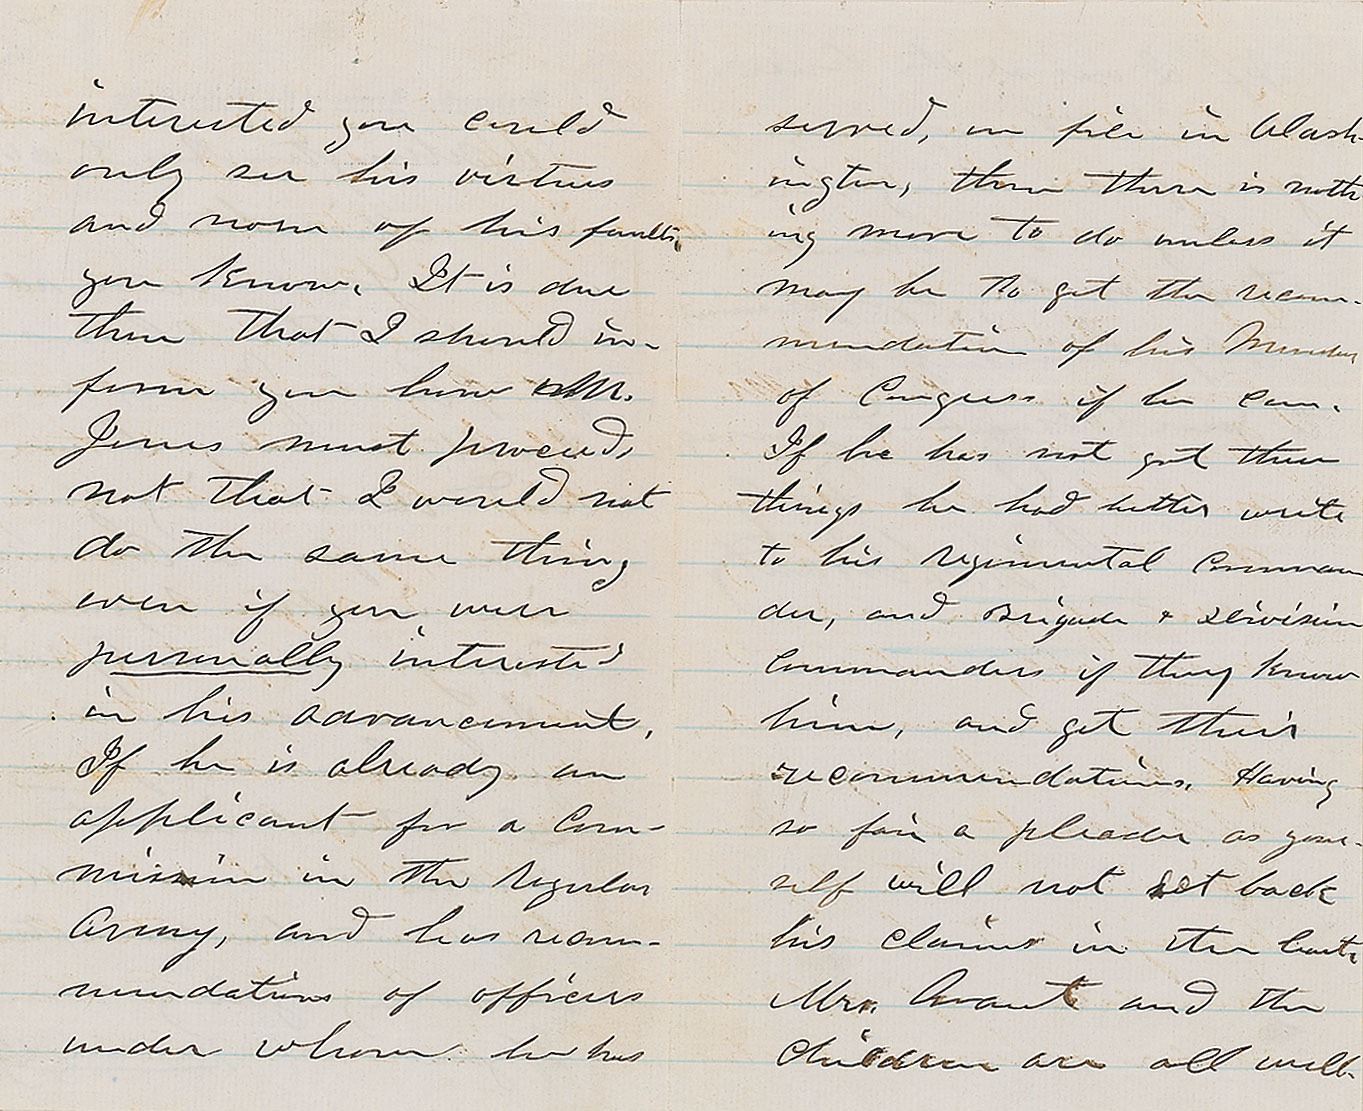 interested you could
only see his virtues
and none of his faults,
you know. It is due
then that I should in-
form you how Mr.
Jones must proceed,
not that I would not
do the same thing
even if you were
personally interested
in his advancement.
If he is already an
applicant for a Com-
mission in the regular
Army, and has recom-
mendations of officers
under whom he has
served, on file in Wash-
ington, then there is noth-
ing more to do unless it
may be to get the recom-
mendation of his Member
of Congress if he can.
If he has not got these
things he had better write
to his regimental Comman
der, and Brigade & Division
Commanders if they know
him, and get their
recommendations. Having
so fair a pleader as your-
self will not set back
his claims in the least.
Mrs. Grant and the
Children are all well.